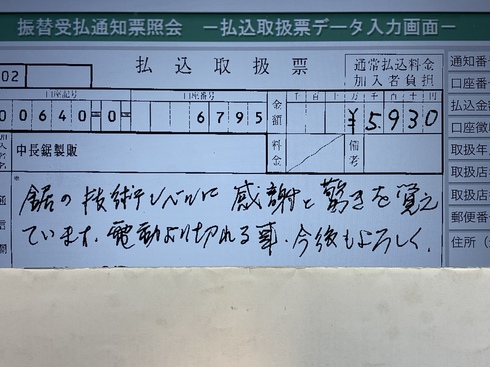 振替受払通知票照会 ー払込取扱票データ入力画面ー
02
払込取扱票
通常払込料金
加入者負担
口座記号
口座番号
00640=0= 6795
金額
千百十万千百十円
¥5930
加入者名
中長鋸製販
料金
備考
通信欄
*
鋸の技術レベルに感謝と驚きを覚え
ています。電動より切れる事。今後もよろしく。
通知番
口座番
払込金
口座徴
取扱年
取扱店
取扱店
郵便番
住所(